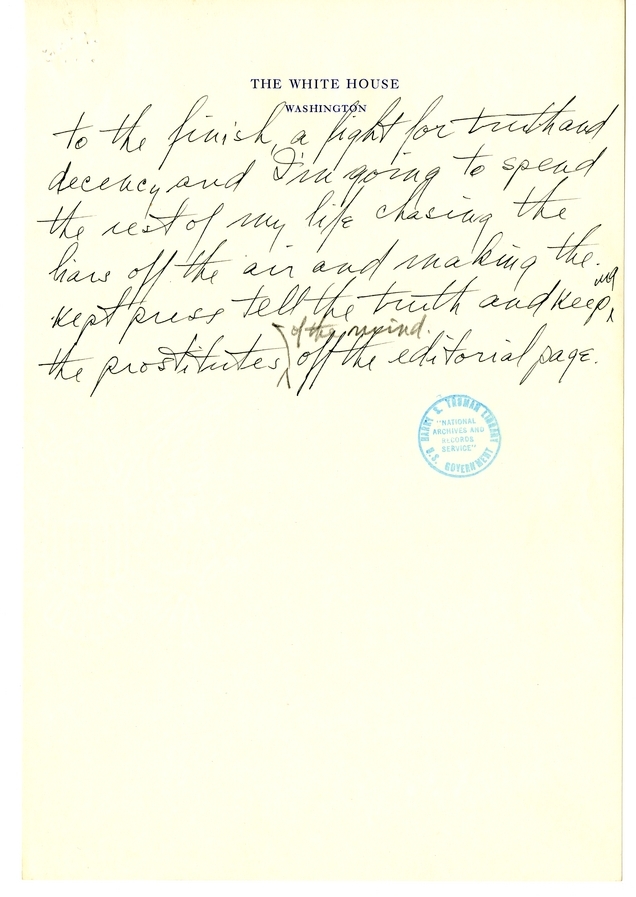 THE WHITE HOUSE
WASHINGTON
to the finish, a fight for truth and
decency and I'm going to spend
the rest of my life chasing the
liars off the air and making the
kept press tell the truth and keeping
of the mind
the prostitutes off the editorial page.
HARRY S. TRUMAN LIBRARY
"NATIONAL
ARCHIVES AND
RECORDS
SERVICE"
U.S. GOVERNMENT